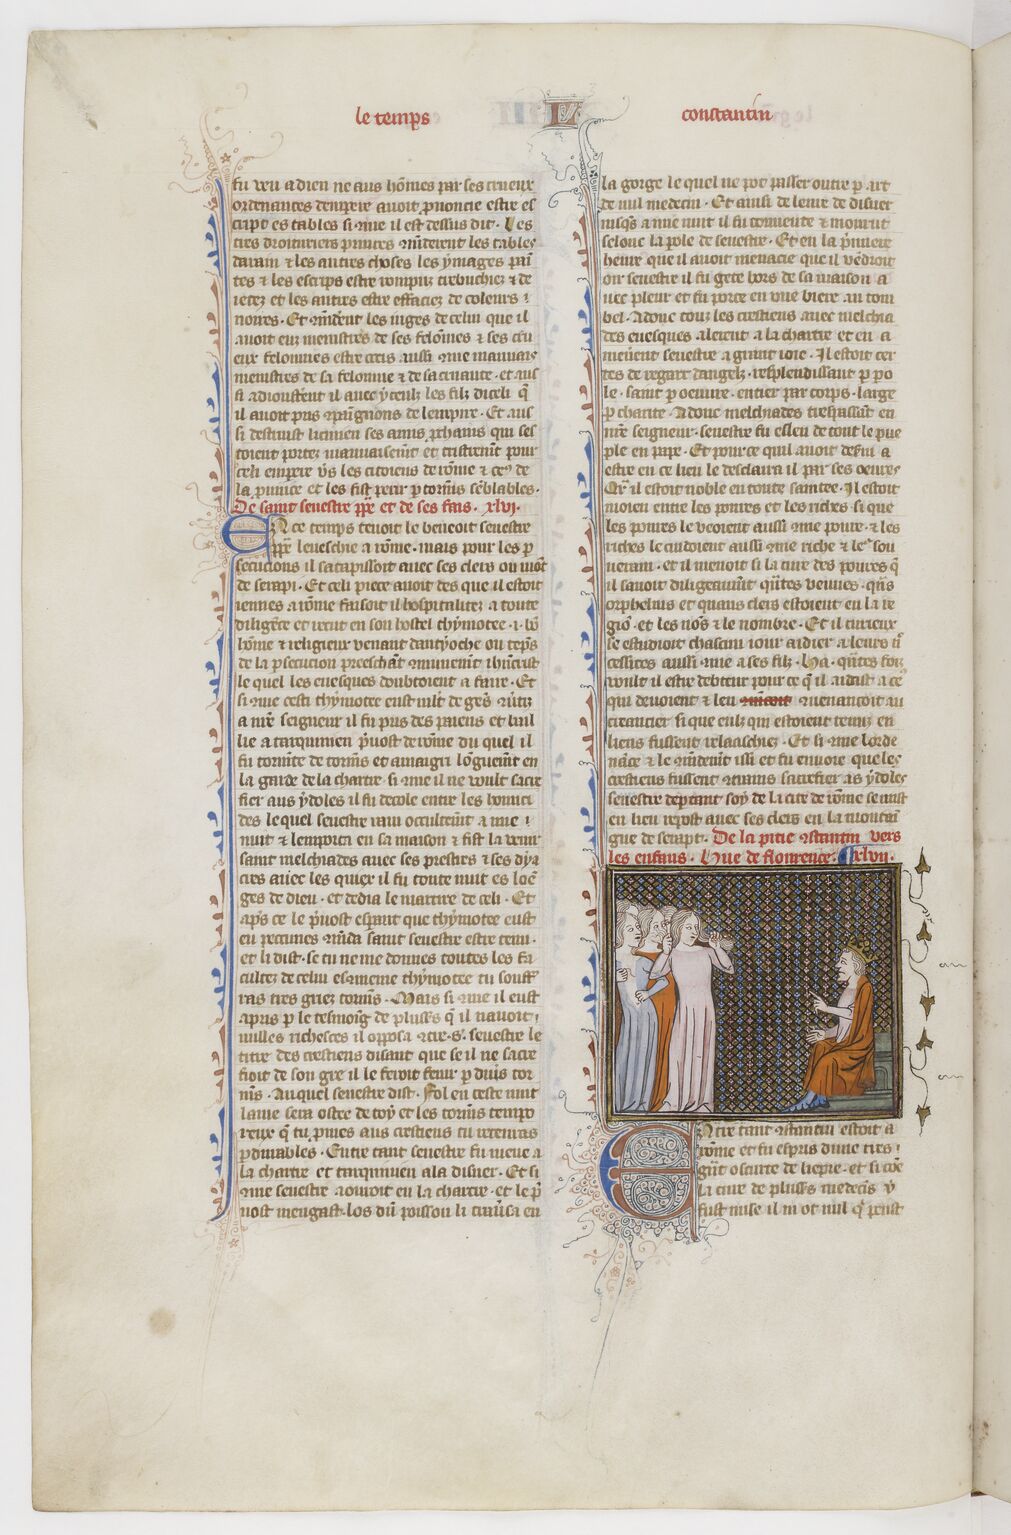 le temps
constantin
fu veu a dien ne aus hõmes par ses crueux
ordenances dempire auoit prononcie estre es
cript es tables si cme il est dessus dit. Les
tres droituriers princes cmãderent les tables
darain & les autres choses les ymages pain
tes & les escrips estre rompuz trebuchiez & de
ietez et les autres estre effaciez de coleurs
noires. Et cmãdent les iuges de celui que il
auoit euz menistres de ses felõnies & ses cru
eux felonnies estre ocis aussi cme mauuais
menistres de sa felonnie & de sa cruaute. et aus
si adioustent il auec yceulz les filz diceli q̃
il auoit pris cpaignons de lempire. Et aus
si destruist licinien ses amis prochains qui ses
toient portez mauuaisemt et tristremt pour
celi empere vs les citoiens de rõme & ceus de
la prouince et les fist perir p tormens semblables.
De saint seuestre ppe et de ses fais. xlvi.
En ce temps tenoit le benеoit seuestre
ppe leueschie a rõme. mais pour les p
secucions il satapissoit auec ses clers ou mõt
de serapi. Et celi piece auoit des que il estoit
iennes a rõme faisoit il hospitalitez a toute
diligẽce et recut en son hostel thymotee. i. bõ
hõme & religieux venant danthyoche ou teps
de la psecucion preeschãt cmunemt ihucrist
le quel les euesques doubtoient a faire. Et
si cme cesti thymotee eust mlt de gẽs cũtiz
a nre seigneur il fu pris des paiens et bail
lie a tarquinien puost de rõme du quel il
fu tormẽte de tormẽs et amaigri lõguemt en
la garde de la chartre si cme il ne voult sacre
fier aus ydoles il fu decole entre les homici
des le quel seuestre raui occultemt a mie
nuit & lemporta en sa maison & fist la venir
saint melchiades auec ses prestres & ses dya
cres auec les quiex il fu toute nuit es loẽ
ges de dieu. et dedia le martire de celi. Et
aps ce le puost esperãt que thymotee eust
eu peccunes cmãda saint seuestre estre tenu.
et li dist. se tu ne me donnes toutes les fa
cultez de celui esmeme thymotee tu souff
ras tres griez tormẽs. Mais si cme il eust
apris p le tesmoig de pluss q̃ il nauoit
nulles richesces il opposa cõtre s. seuestre le
titre des crestiens disant que se il ne sacre
fioit de son gre il le feroit fenir p diuers tor
mẽs. Auquel seuestre dist. Fol en ceste nuit
lame sera ostee de toy et les tormẽs tempo
reux q̃ tu pmes aus crestiens tu receuras
pdurables. Entre tant seuestre fu mene a
la chartre et tarquinien ala disner. Et si
cme seuestre aouroit en la chartre. et le p
uost mengast. los du poisson li trauersa en
la gorge le quel ne pot passer outre p art
de nul medecin. Et ainsi de leure de disner
iusqs a mie nuit il fu tormente & mourut
selonc la pole de seuestre. Et en la pmiere
heure que il auoit menacie que il vedroit
oir seuestre il fu gete hors de sa maison a
uec pleur et fu porte en vne biere au tom
bel. Adonc touz les crestiens auec melchia
des euesques alerent a la chartre et en a
menent seuestre a grant ioie. Il estoit cer
tes de regart dangelz. resplendissant p po
le. saint p oeuure. entier par corps. large
p charite. Adonc melchiades trespassãt en
nre seigneur. seuestre fu esleu de tout le pue
ple en pape. Et pour ce quil auoit desui a
estre en ce lieu le desclaira il par ses oeures
Car il estoit noble en toute saintee. Il estoit
moien entre les poures et les riches si que
les poures le veoient aussi cme poure. & les
riches le cuidoient aussi cme riche & le sou
uerain. et il menoit si la cure des poures q̃
il sauoit diligeaumt qũtes veuues. qns
orphelins et quans clers estoient en la re
gio. et les nõs & le nombre. Et il curieux
se estudioit chascun iour aidier a leurs ne
cessites aussi cme a ses filz. Ha. qũtes foiz
voult il estre debteur pour ce q̃ il aidast a ce
qui deuoient & leu cuenancoit au
creancier si que eulz qui estoient tenuz en
liens fussent relaschiez. Et si cme lorde
nãce & le cmãdemt issi et fu enuoie que les
crestiens fussent cntrains sacrefier as ydoles
seuestre deptant soy de la cite de rõme se mist
en lieu repost auec ses clers en la montai
gne de serapt. De la pitie cstantin vers
les enfans. Hue de flourence. xlvii.
Entre tant cstantin estoit a
rõme et fu espris dune tres
grãt oscurte de liepre. et si cõe
la cure de pluss medecis y
fust mise il ni ot nul q̃ peust